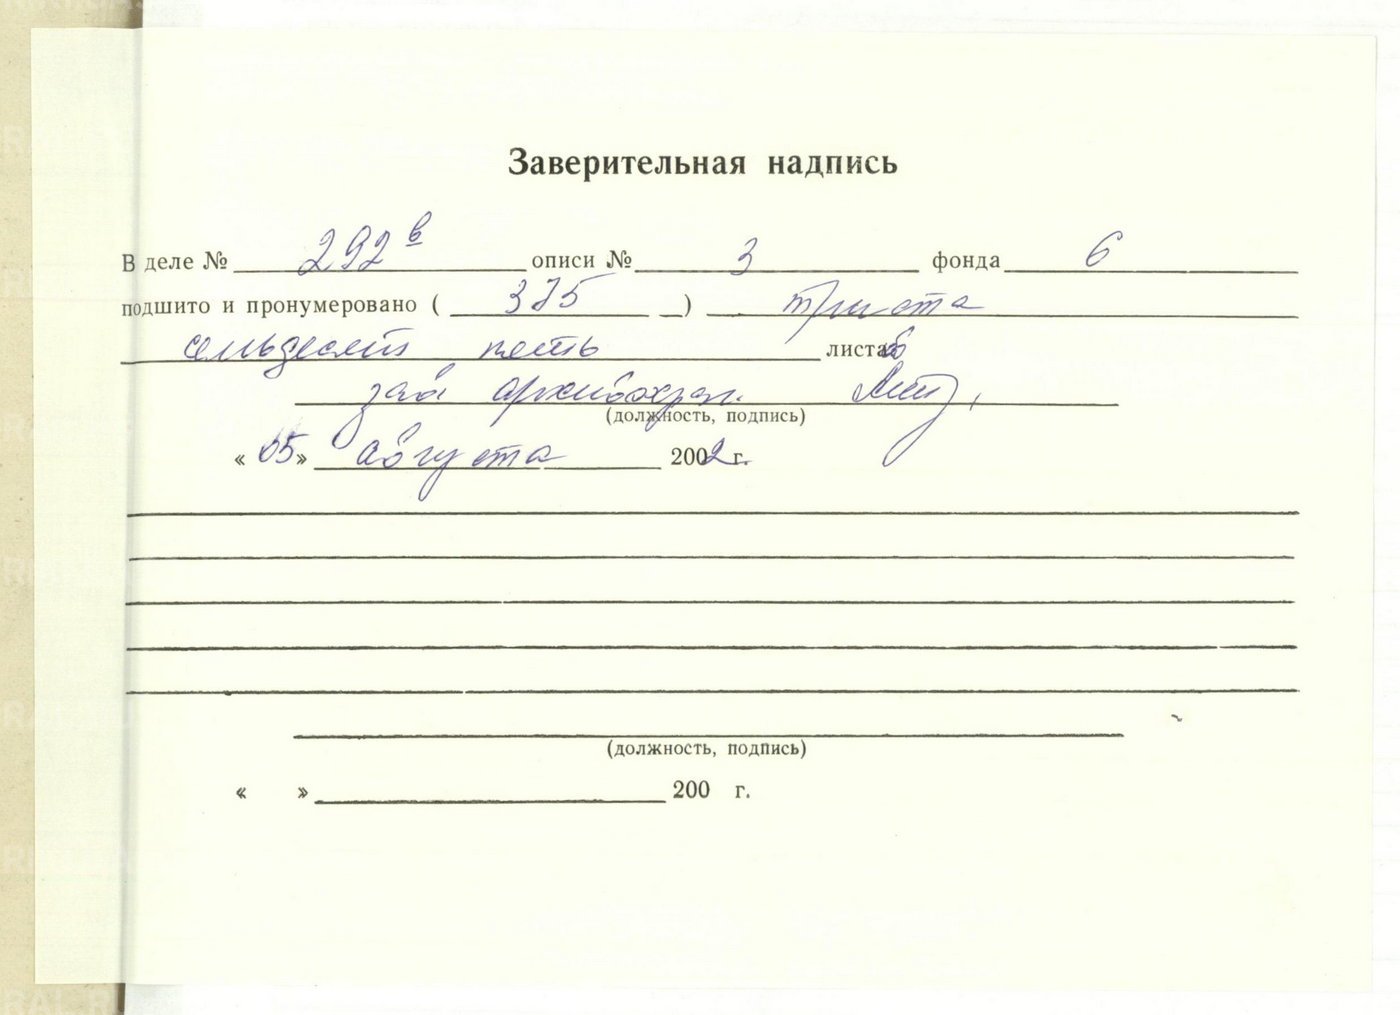 Заверительная надпись
В деле № 292 в описи № 3 фонда 6
подшито и пронумеровано ( 375 ) триста
семьдесят пять листов
зав архивохран.
(должность, подпись)
« 05 » августа 2002 г.
(должность, подпись)
« » 200 г.